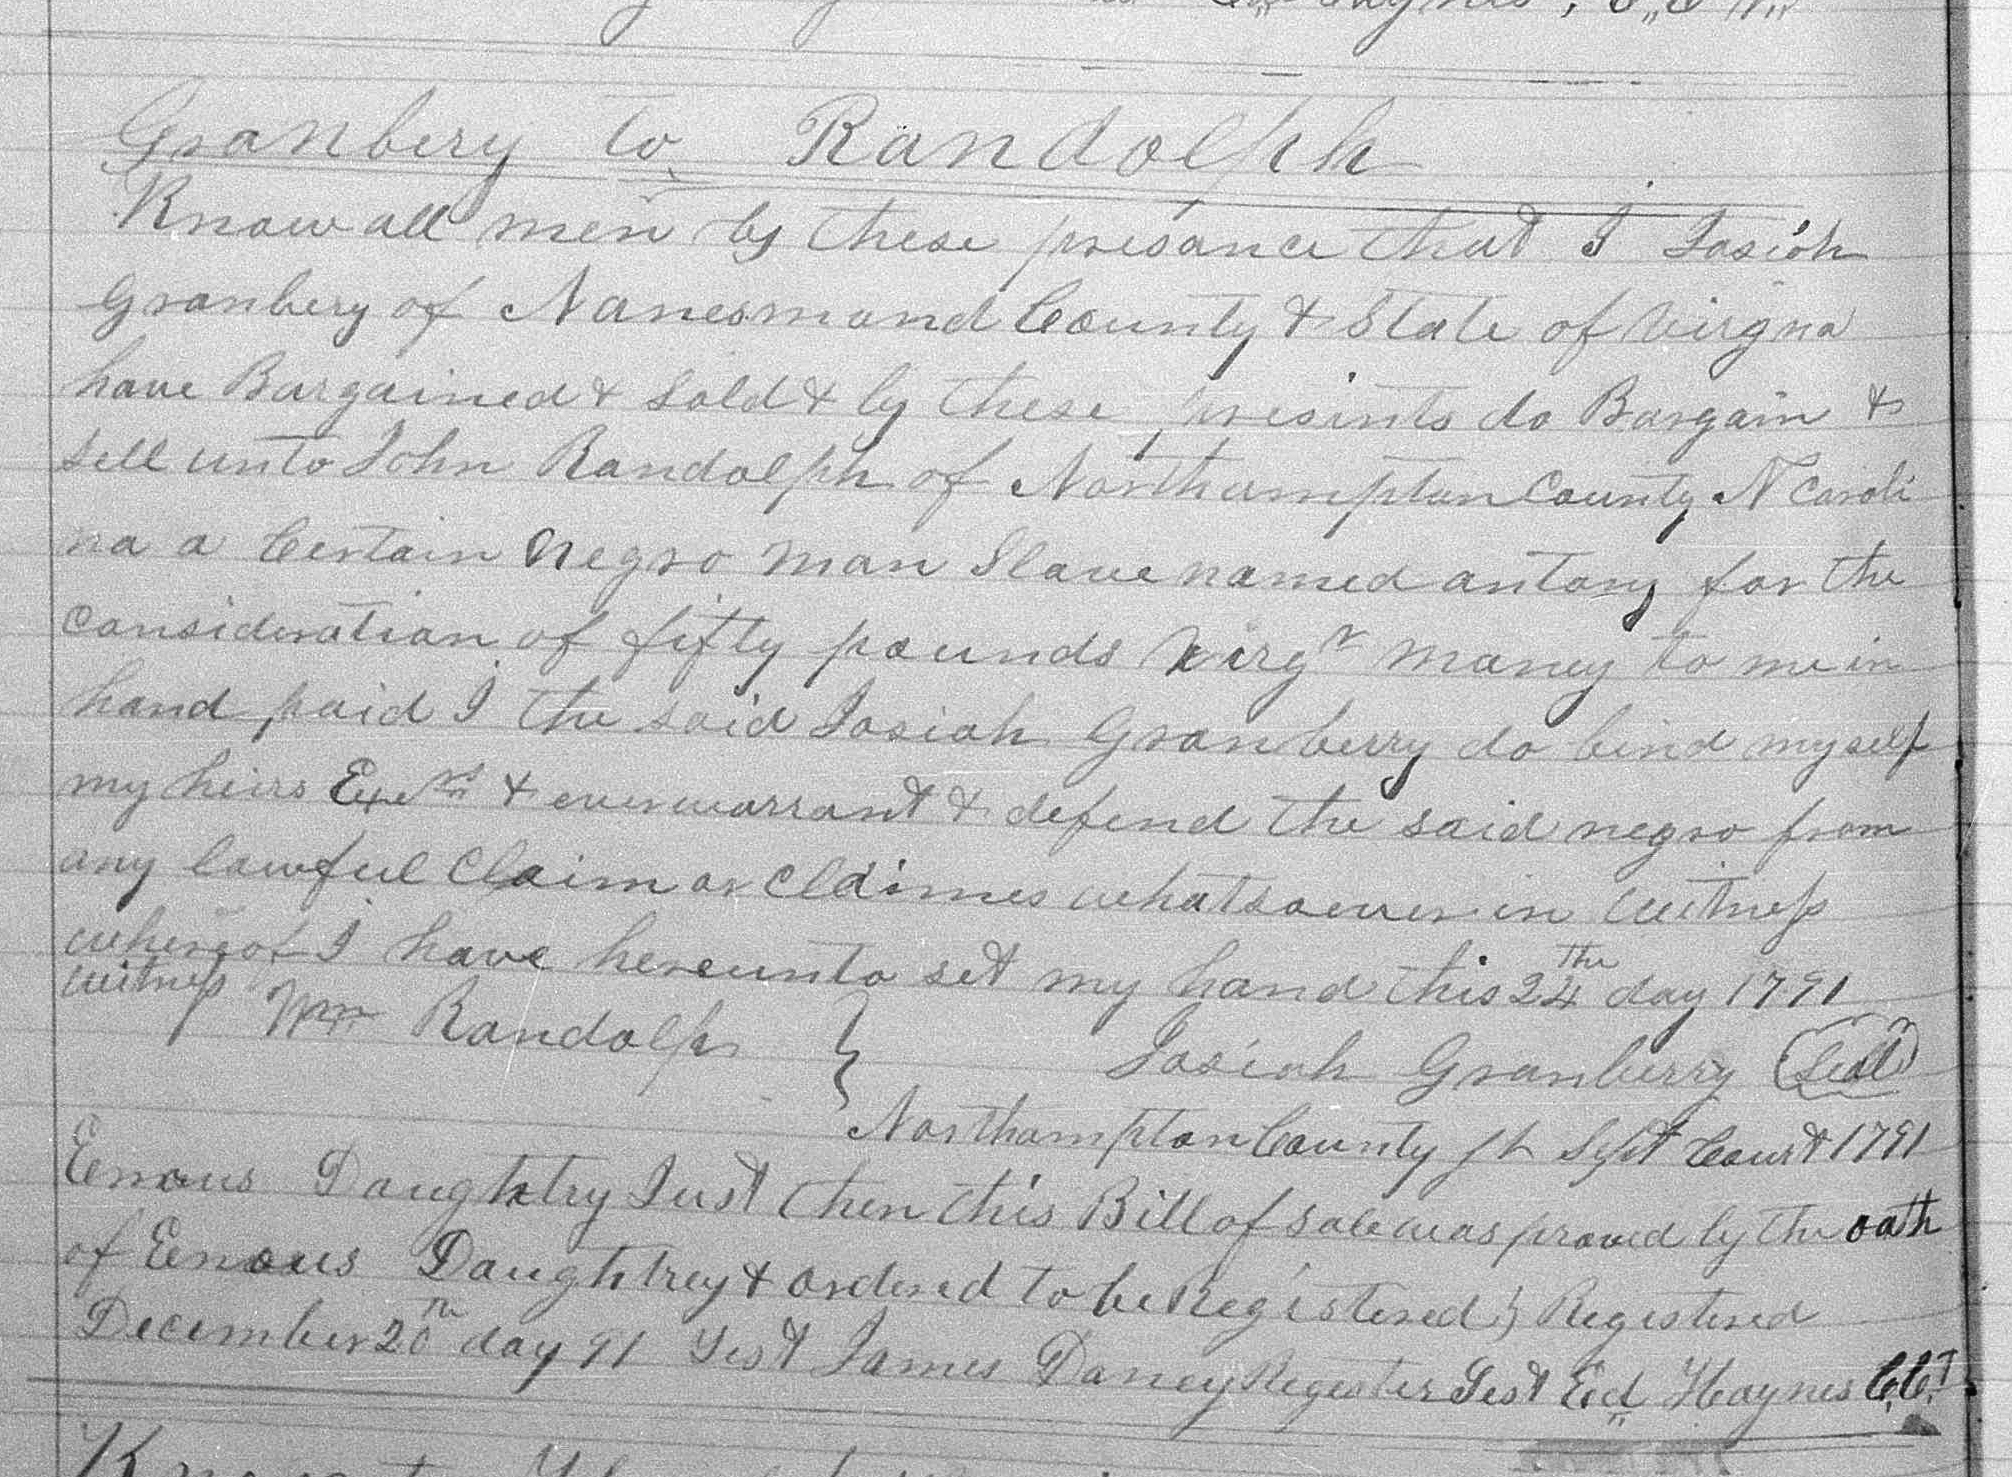 Granbery to Randolph
Know all men by these presance that I Josiah
Granbery of Nanesmond County & State of Virgna
have Bargained & Sold & by these presints do Bargain &
sell unto John Randolph of Northampton County N Caroli
na a Certain Negro man Slave named antony for the
consideration of fifty pounds Virgr money to me in
hand paid I the said Josiah Granberry do bind myself
my heirs Exers & ever warrant & defend the said negro from
any lawful Claim or Cldimes whatsoever in witness
whereof I have hereunto set my hand this 24th day 1791
witness Wm Randolph Josiah Granberry Seal
Northampton County Sept Court 1791
Enous Daughtry Just then this Bill of sale was proved by the oath
of Enous Daughtrey & ordered to be Registered } Registered
December 20th day 91 Test James Dancy Register Test Ed Haynes C.C.T